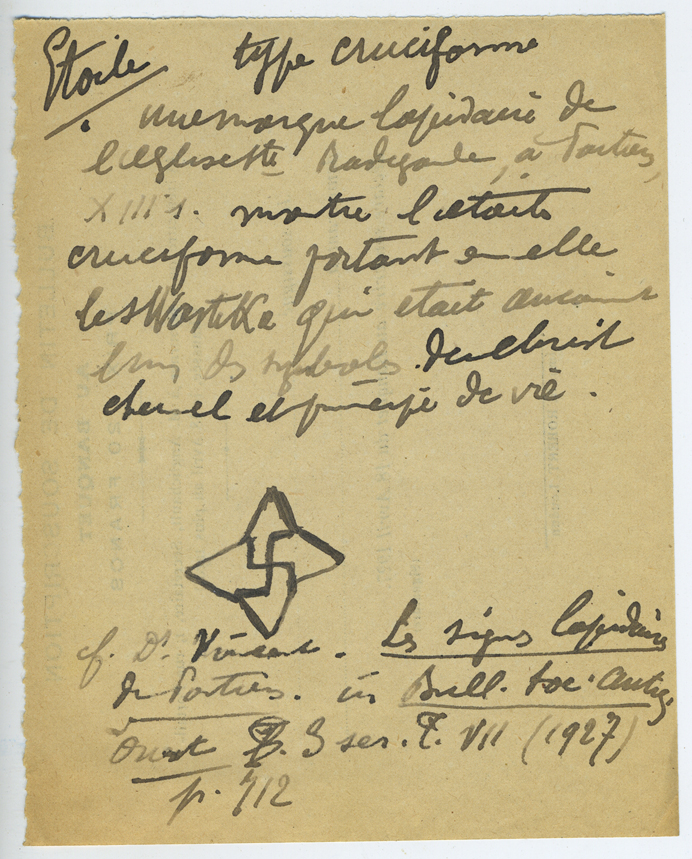 Etoile type cruciforme
une marque lapidaire de
l'eglise Ste Radegonde, à Poitiers,
XIII s. montre l'etoile
cruciforme portant en elle
le sWastiKa qui etait
l'un des symboles du Christ
et principe de vie.
cf. Dr Vincent. Les signes lapidaires
de Poitiers. in Bull. Soc. Antiq.
Ouest 3 ser. T. VII (1927)
p. 712